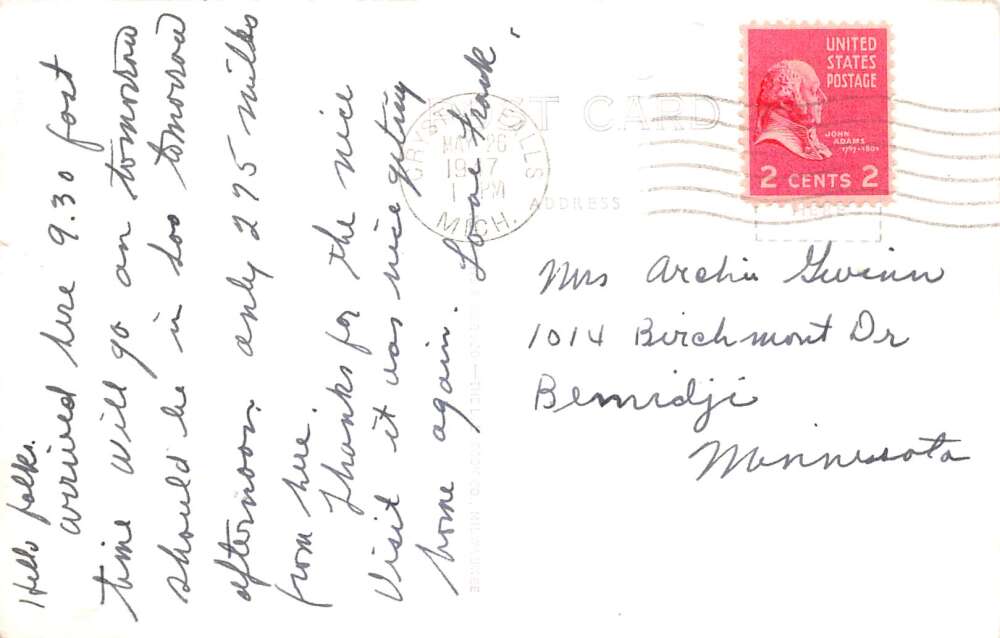 Hello folks.
arrived here 9.30 fast
time will go on tomorrow
should be in Soo tomorrow
afternoon. only 275 miles
from here.
Thanks for the nice
visit it was nice getting
home again. Love Frank.
POST CARD
CRYSTAL FALLS
MAY 26
1947
1 PM
MICH.
ADDRESS
UNITED
STATES
POSTAGE
JOHN
ADAMS
1797-1801
2 CENTS 2
HERE
Mrs Archie Gwinn
1014 Birchmont Dr
Bemidji
Minnesota